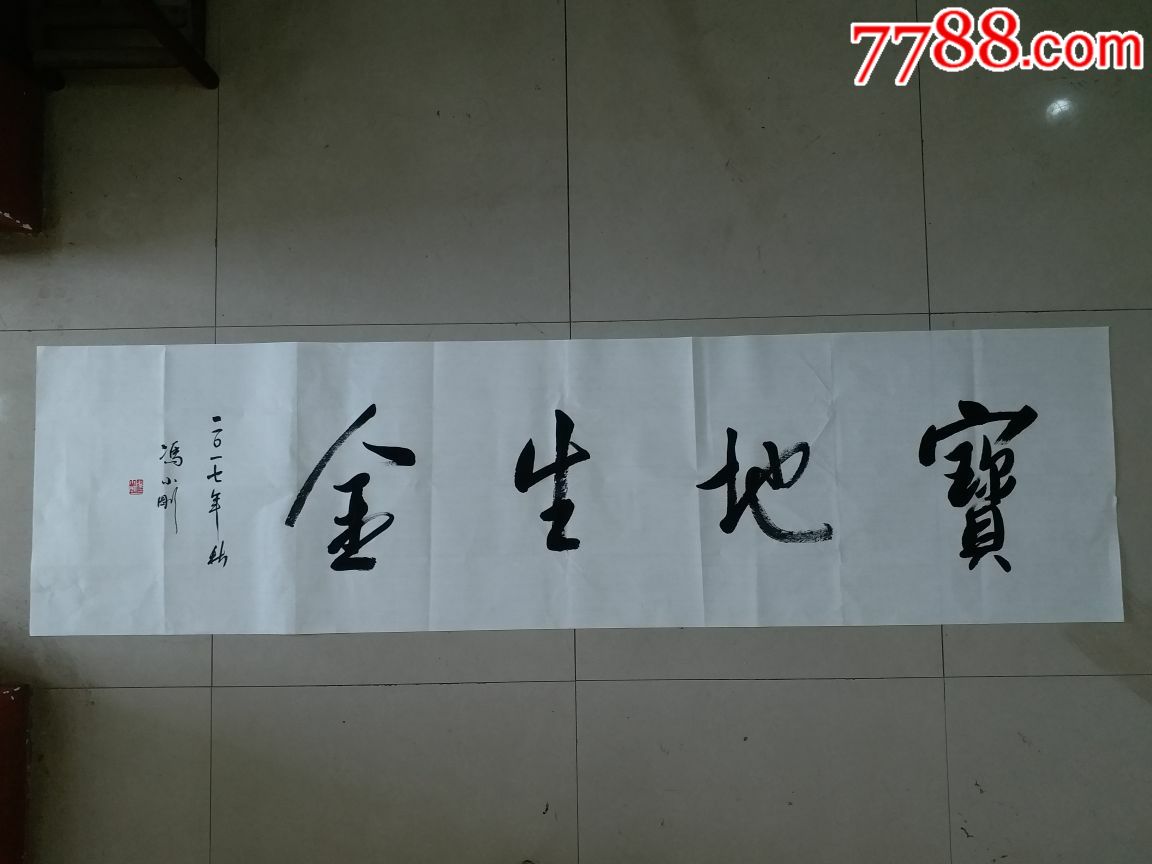 7788.com
寶地生金
二〇一七年秋
馮小剛